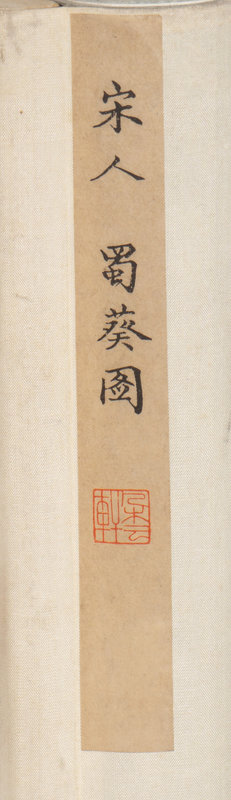 宋人 蜀葵图